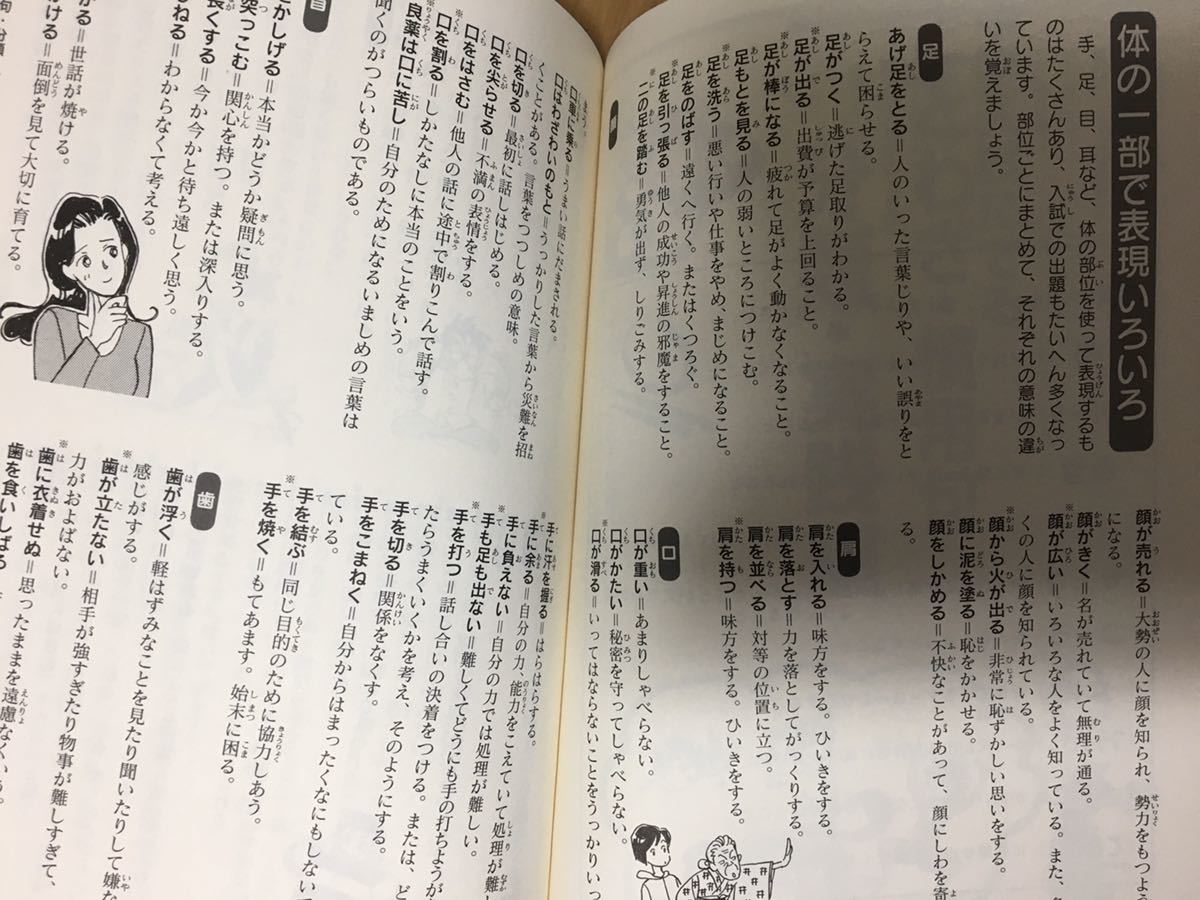 体の一部で表現いろいろ
手、足、目、耳など、体の部位を使って表現するも
のはたくさんあり、入試での出題もたいへん多くなっ
ています。部位ごとにまとめて、それぞれの意味の違
いを覚えましょう。
足
あげ足をとる＝人のいった言葉じりや、いい誤りをと
らえて困らせる。
足がつく＝逃げた足取りがわかる。
足が出る＝出費が予算を上回ること。
※足が棒になる＝疲れて足がよく動かなくなること。
足もとを見る＝人の弱いところにつけこむ。
※足を洗う＝悪い行いや仕事をやめ、まじめになること。
足をのばす＝遠くへ行く。またはくつろぐ。
※足を引っ張る＝他人の成功や昇進の邪魔をすること。
※二の足を踏む＝勇気が出ず、しりごみする。
顔が売れる＝大勢の人に顔を知られ、勢力をもつよう
になる。
顔がきく＝名が売れていて無理が通る。
※顔が広い＝いろいろな人をよく知っている。また、
くの人に顔を知られている。
※顔から火が出る＝非常に恥ずかしい思いをする。
顔に泥を塗る＝恥をかかせる。
顔をしかめる＝不快なことがあって、顔にしわを寄
る。
肩
肩を入れる＝味方をする。ひいきをする。
肩を落とす＝力を落としてがっくりする。
肩を並べる＝対等の位置に立つ。
※肩を持つ＝味方をする。ひいきをする。
口
口が重い＝あまりしゃべらない。
口がかたい＝秘密を守ってしゃべらない。
口が滑る＝いってはならないことをうっかりいっ
まう。
口車に乗る＝うまい話にだまされる。
口はわざわいのもと＝うっかりした言葉から災難を招
くことがある。言葉をつつしめの意味。
口を切る＝最初に話しはじめる。
※口を尖らせる＝不満の表情をする。
口をはさむ＝他人の話に途中で割りこんで話す。
口を割る＝しかたなしに本当のことをいう。
※良薬は口に苦し＝自分のためになるいましめの言葉は
聞くのがつらいものである。
首
かしげる＝本当かどうか疑問に思う。
突っこむ＝関心を持つ。または深入りする。
長くする＝今か今かと待ち遠しく思う。
ねる＝わからなくて考える。
かる＝世話が焼ける。
ける＝面倒を見て大切に育てる。
※手に汗を握る＝はらはらする。
手に余る＝自分の力、能力をこえていて処理が難
※手に負えない＝自分の力では処理が難しい。
※手も足も出ない＝難しくてどうにも手の打ちようが
手を打つ＝話し合いの決着をつける。または、ど
たらうまくいくかを考え、そのようにする。
手を切る＝関係をなくす。
手をこまねく＝自分からはまったくなにもしない
ている。
手を結ぶ＝同じ目的のために協力しあう。
※手を焼く＝もてあます。始末に困る。
歯
歯が浮く＝軽はずみなことを見たり聞いたりして嫌な
感じがする。
※歯が立たない＝相手が強すぎたり物事が難しすぎて、
力がおよばない。
※歯に衣着せぬ＝思ったままを遠慮なくいう。
歯を食いしばる